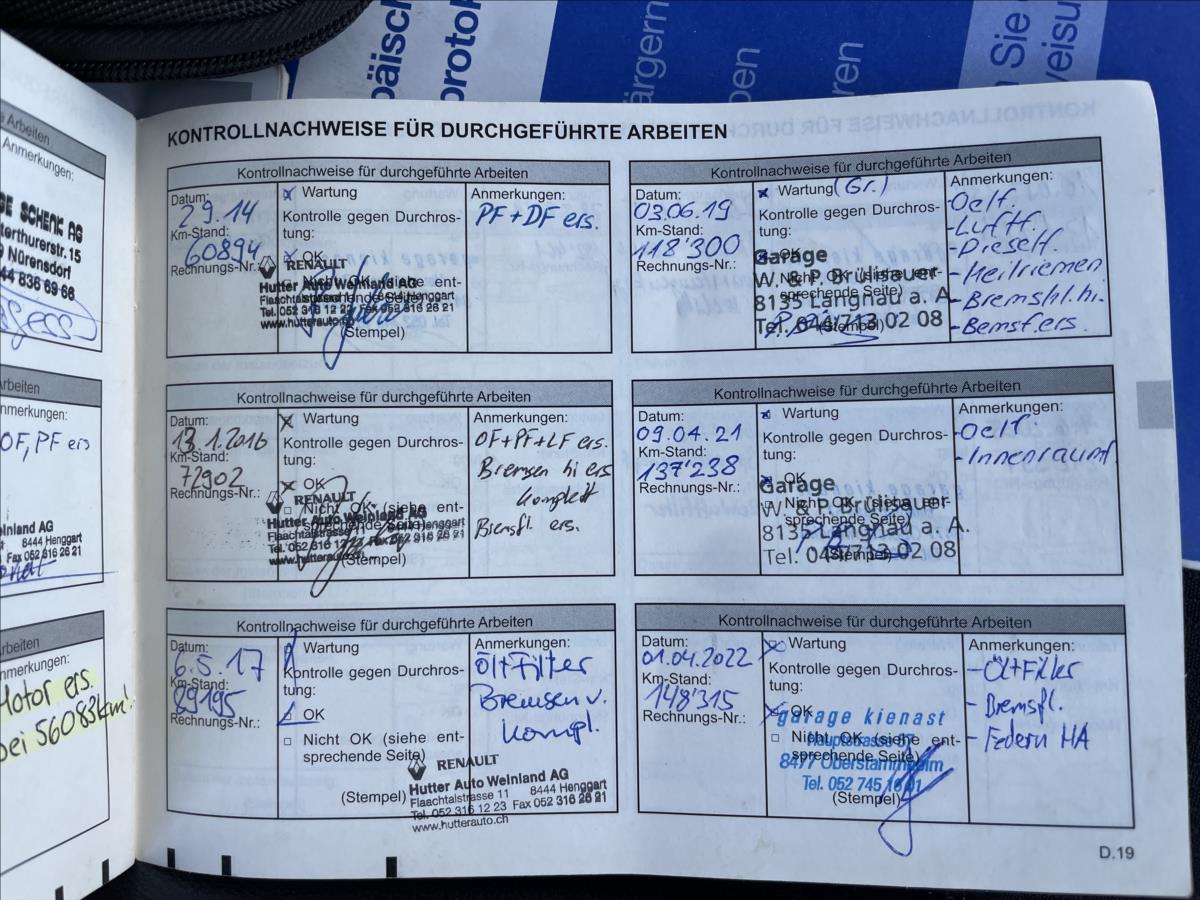 päisch
protok
ärgern
ben
ren
n Sie d
weisu
e Arbeiten
Anmerkungen:
GE SCHENK AG
terthurerstr. 15
Nürensdorf
44 836 69 66
rbeiten
nmerkungen:
OF, PF ers
inland AG
8444 Henggart
Fax 052 316 26 21
rbeiten
nmerkungen:
Motor ers.
bei 56083km!
KONTROLLNACHWEISE FÜR DURCHGEFÜHRTE ARBEITEN
Kontrollnachweise für durchgeführte Arbeiten
Datum:
2 9.14
Km-Stand:
60894
Rechnungs-Nr.:
x Wartung
Kontrolle gegen Durchros-
tung:
x OK
□ Nicht OK (siehe ent-
sprechende Seite)
(Stempel)
RENAULT
Hutter Auto Weinland AG
Flaachtalstrasse 11 8444 Henggart
Tel. 052 316 12 23 Fax 052 316 26 21
www.hutterauto.ch
Anmerkungen:
PF + DF ers.
Kontrollnachweise für durchgeführte Arbeiten
Datum:
13.1.2016
Km-Stand:
72902
Rechnungs-Nr.:
x Wartung
Kontrolle gegen Durchros-
tung:
x OK
□ Nicht OK (siehe ent-
sprechende Seite)
(Stempel)
RENAULT
Hutter Auto Weinland AG
Flaachtalstrasse 11 8444 Henggart
Tel. 052 316 12 23 Fax 052 316 26 21
www.hutterauto.ch
Anmerkungen:
OF+PF+LF ers.
Bremsen hi ers
komplett
Bremsfl. ers.
Kontrollnachweise für durchgeführte Arbeiten
Datum:
6.5.17
Km-Stand:
89195
Rechnungs-Nr.:
□ Wartung
Kontrolle gegen Durchros-
tung:
□ OK
□ Nicht OK (siehe ent-
sprechende Seite)
(Stempel)
RENAULT
Hutter Auto Weinland AG
Flaachtalstrasse 11 8444 Henggart
Tel. 052 316 12 23 Fax 052 316 26 21
www.hutterauto.ch
Anmerkungen:
Öl+Filter
Bremsen v.
kompl.
Kontrollnachweise für durchgeführte Arbeiten
Datum:
03.06.19
Km-Stand:
118'300
Rechnungs-Nr.:
x Wartung (Gr.)
Kontrolle gegen Durchros-
tung:
x OK
□ Nicht OK (siehe ent-
sprechende Seite)
(Stempel)
Garage
W. & P. Brülisauer
8135 Langnau a. A.
Tel. 044/713 02 08
Anmerkungen:
-Oelf.
-Luftf.
-Dieself.
-Keilriemen
-Bremskl.hi.
-Bemsf.ers.
Kontrollnachweise für durchgeführte Arbeiten
Datum:
09.04.21
Km-Stand:
137'238
Rechnungs-Nr.:
x Wartung
Kontrolle gegen Durchros-
tung:
x OK
□ Nicht OK (siehe ent-
sprechende Seite)
(Stempel)
Garage
W. & P. Brülisauer
8135 Langnau a. A.
Tel. 044/713 02 08
Anmerkungen:
-Oelf.
-Innenraumf
Kontrollnachweise für durchgeführte Arbeiten
Datum:
01.04.2022
Km-Stand:
148'315
Rechnungs-Nr.:
x Wartung
Kontrolle gegen Durchros-
tung:
x OK
□ Nicht OK (siehe ent-
sprechende Seite)
(Stempel)
garage kienast
8477 Oberstammheim
Tel. 052 745
Anmerkungen:
- Öl+Filter
- Bremsfl.
- Federn HA
D.19